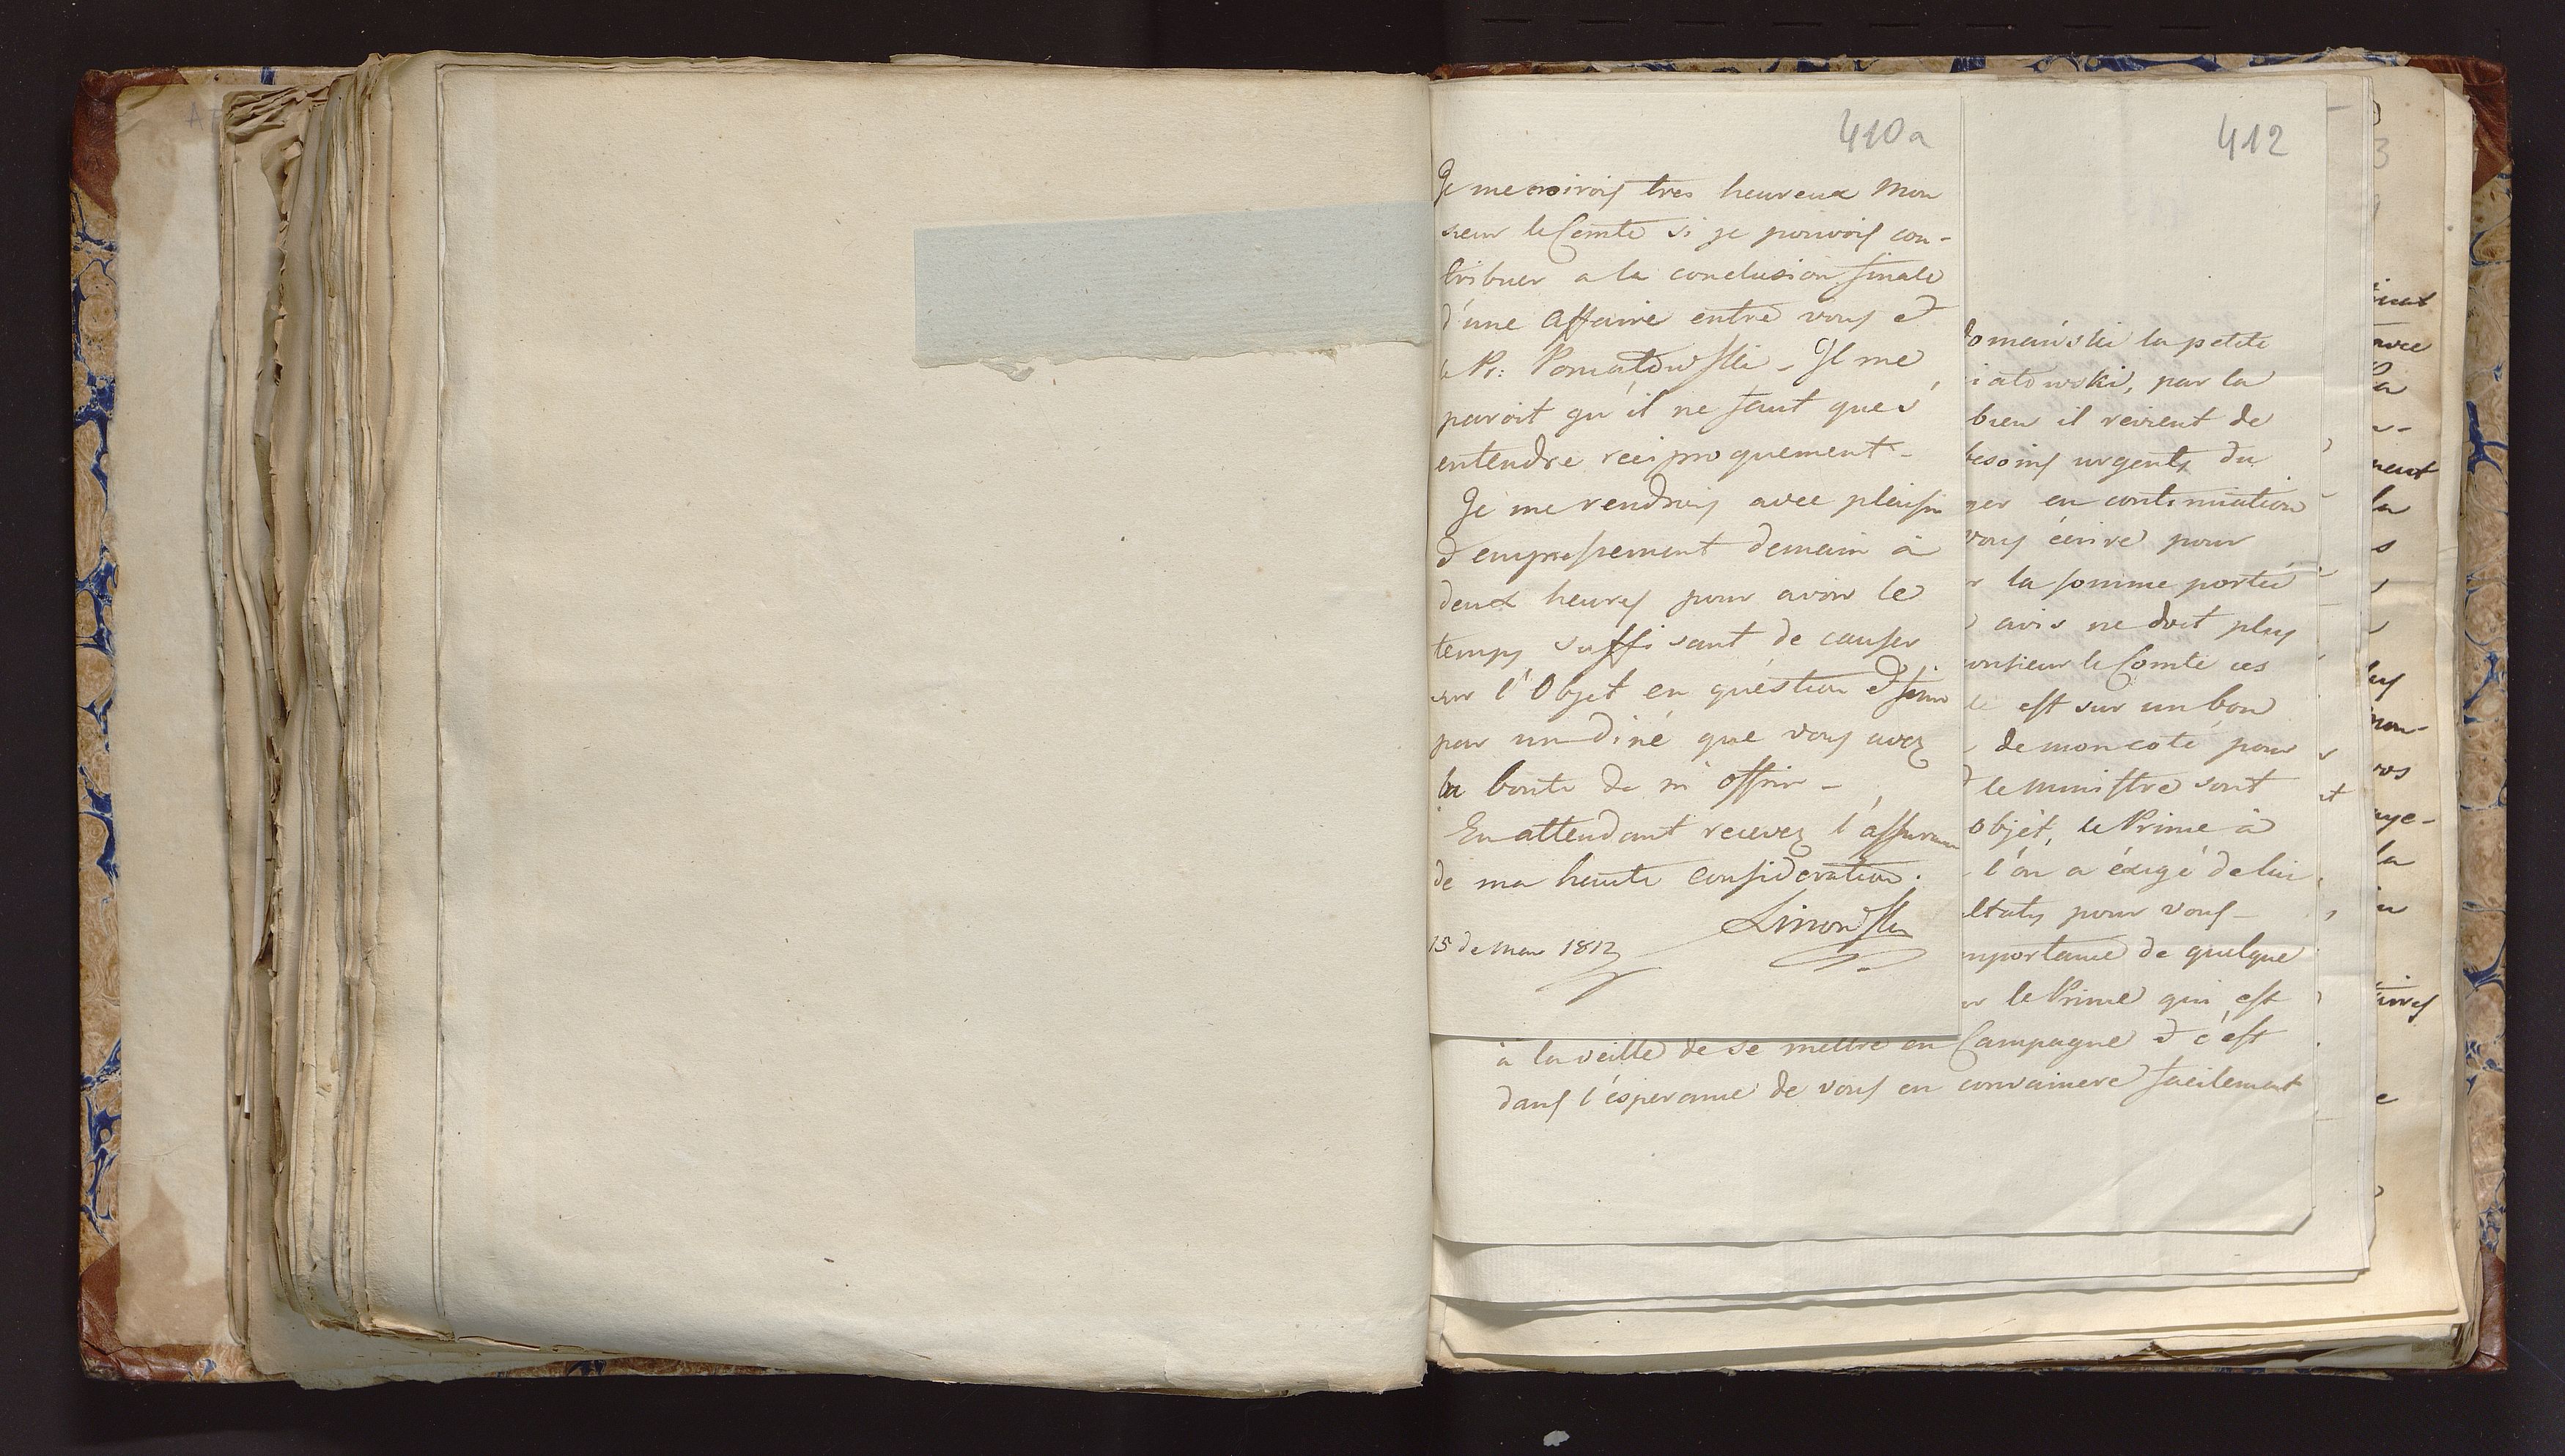 410a
Je me croirois tres heureux Mon
sieur le Comte si je pouvois con-
tribuer a la conclusion finale
d'une Affaire entre vous et
le Pr: Poniatowski - Il me
paroit qu'il ne faut que s'
entendre reciproquement -
Je me rendrois avec plaisir
d'empressement demain à
deux heures pour avoir le
temps suffisant de causer
sur l'Objet en question et
par un diné que vous avez
la bonté de m'offrir -
En attendant recevez l'assurance
de ma haute consideration.
Linowski
15 de Mar 1812
412
domański la petite
iatowski, par la
bien il revient de
besoins urgents du
ger en continuation
vous écrire pour
r la somme portée
avis ne doit plus
onsieur le Comte ces
le est sur un bon
de mon coté pour
le Ministre sont
Objét, le Prince à
l'on a éxigé de lui
ltats pour vous -
mportance de quelque
ur le Prince qui est
à la veille de se mettre en Campagne et c'est
dans l'ésperance de vous en convaincre facilement
avec
la
ment
la
vos
la